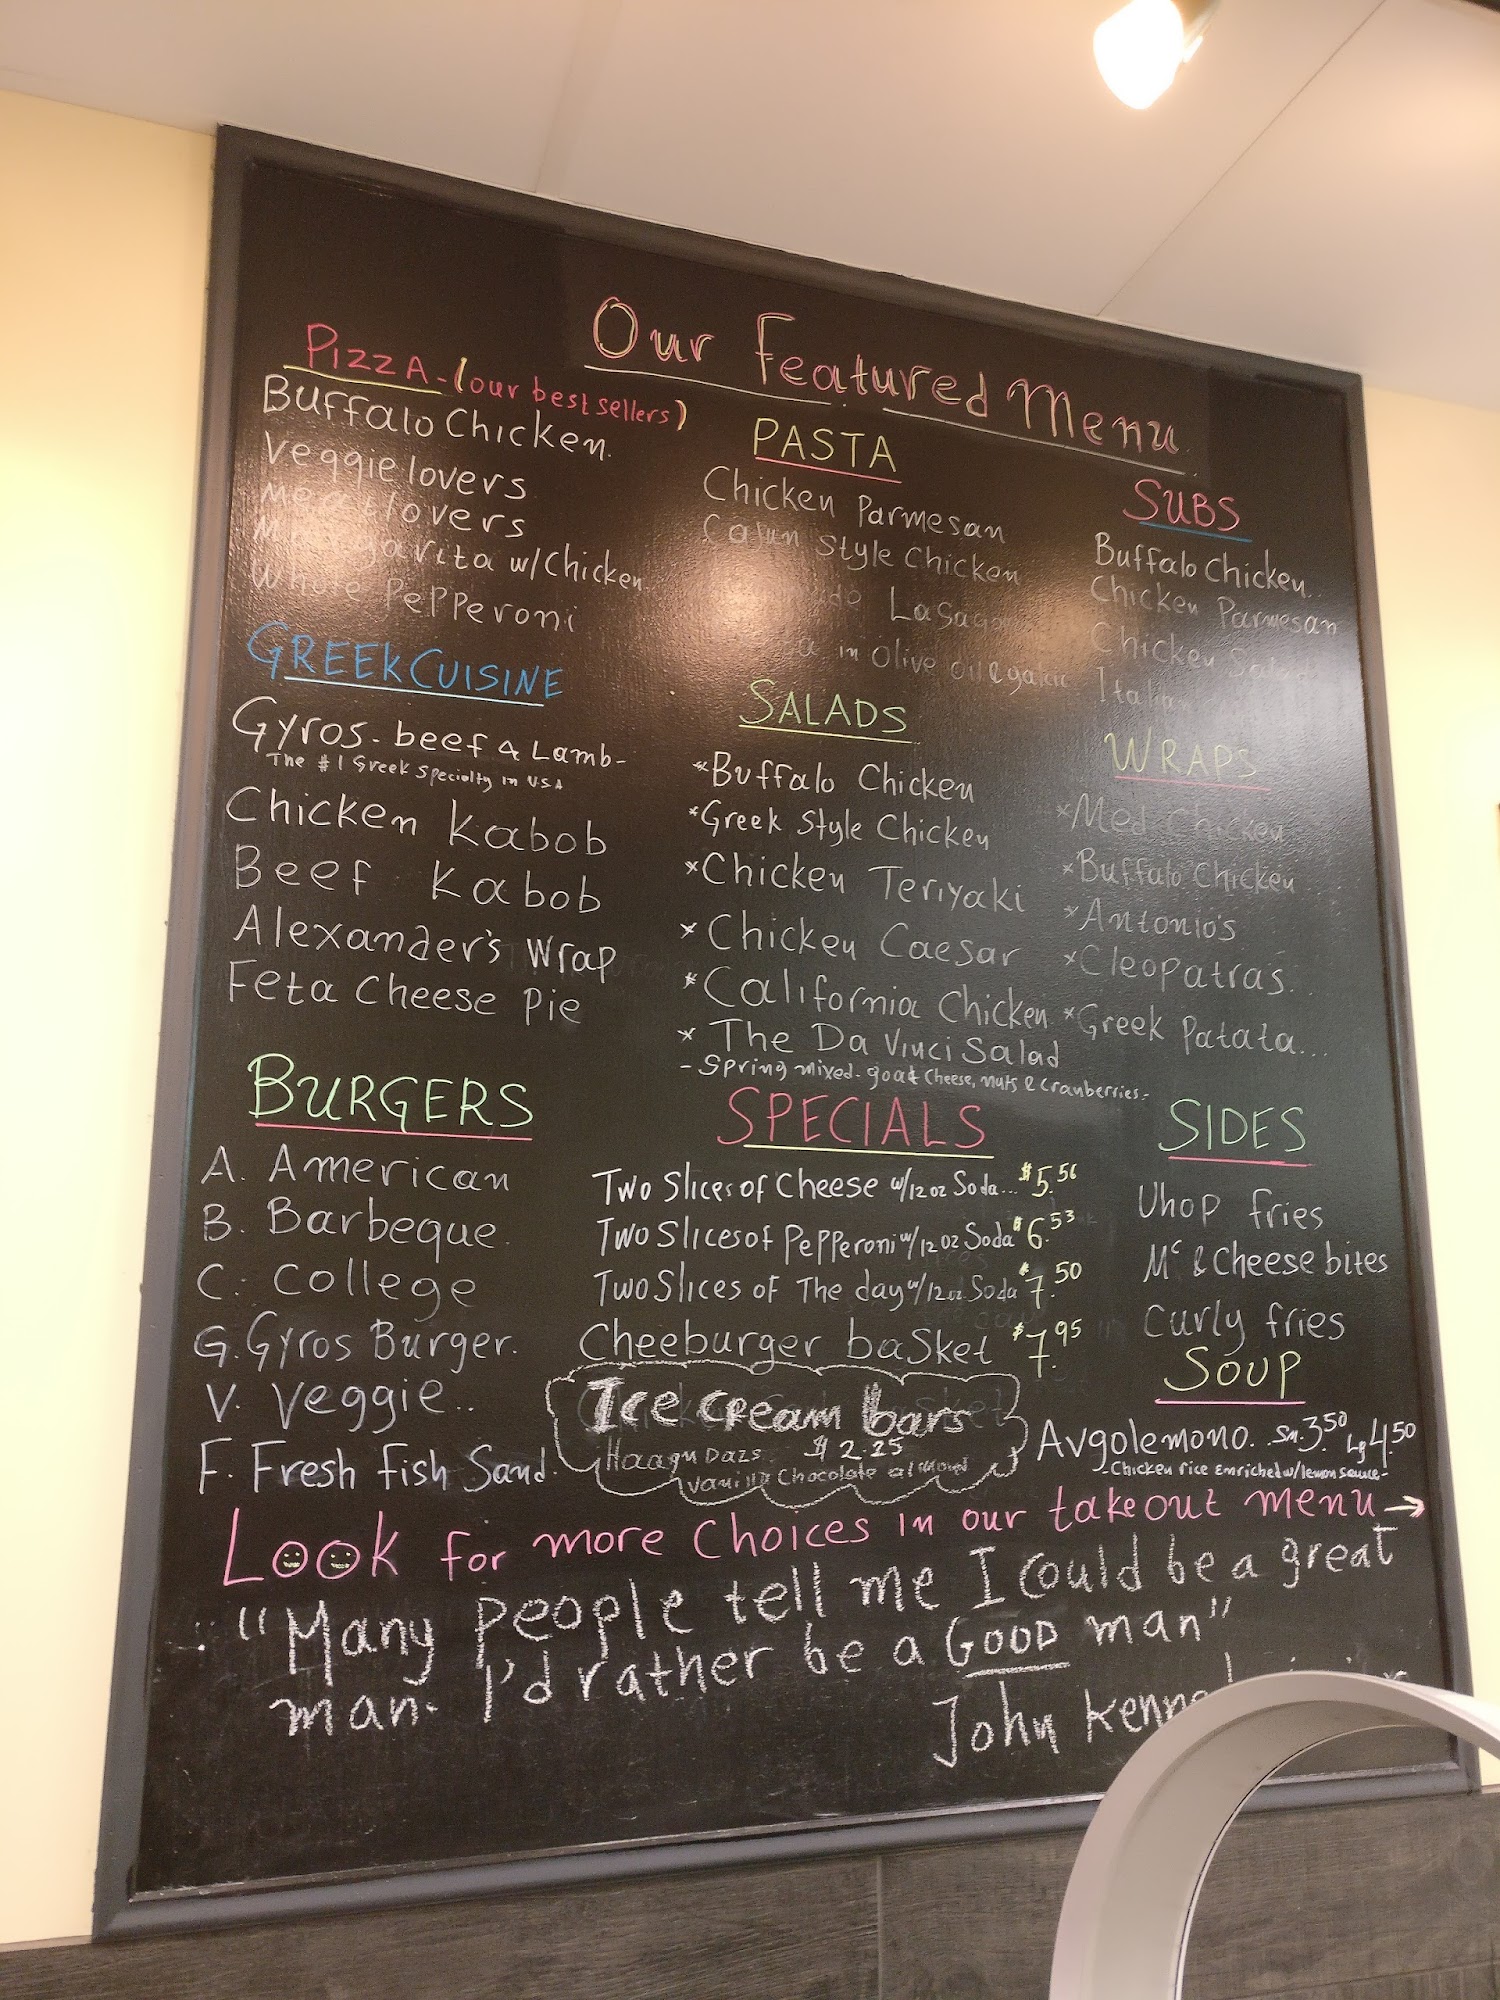 Our Featured Menu
PIZZA - (our best sellers)
Buffalo Chicken
Veggie lovers
Meat lovers
Margarita w/Chicken
Whole Pepperoni
GREEK CUISINE
Gyros - beef & Lamb -
The #1 Greek Specialty in USA
Chicken Kabob
Beef Kabob
Alexander's Wrap
Feta Cheese Pie
PASTA
Chicken Parmesan
Cajun Style Chicken
Lasagna
in Olive oil & garlic
SALADS
*Buffalo Chicken
*Greek Style Chicken
*Chicken Teriyaki
*Chicken Caesar
*California Chicken
*The Da Vinci Salad
- Spring mixed - goat cheese, nuts & cranberries -
SUBS
Buffalo Chicken..
Chicken Parmesan
Chicken Salad
Italian
WRAPS
*Med Chicken
*Buffalo Chicken
*Antonio's
*Cleopatra's..
*Greek Patata...
BURGERS
A. American
B. Barbeque
C. College
G. Gyros Burger.
V. Veggie..
F. Fresh Fish Sand.
SPECIALS
Two Slices of Cheese w/12 oz Soda... $5.56
Two Slices of Pepperoni w/12 oz Soda $6.53
Two Slices of The day w/12 oz Soda $7.50
Cheeburger basket $7.95
Ice cream bars
Haagn Dazs $2.25
Vanilla Chocolate almond
SIDES
Uhop fries
Mc & Cheese bites
Curly fries
SOUP
Avgolemono.. Sm. 3.50 Lg 4.50
- Chicken rice Enriched w/lemon sauce -
Look for more Choices in our takeout menu →
"Many people tell me I could be a great
man. I'd rather be a GOOD man"
John